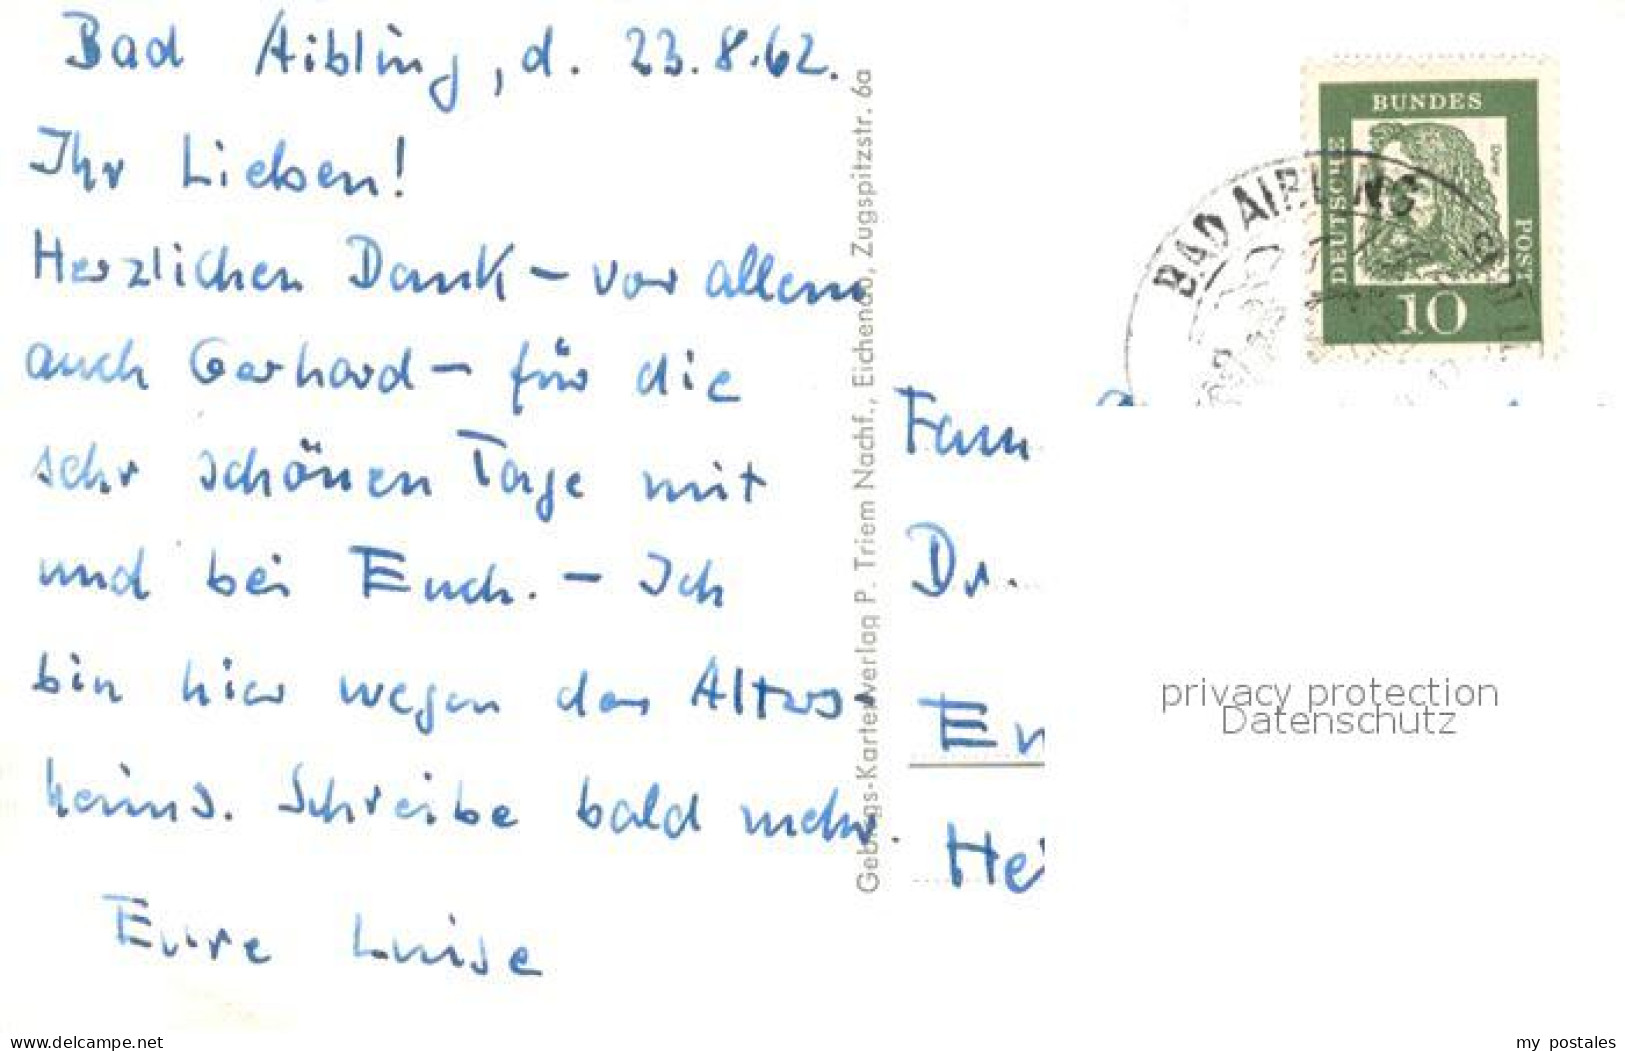 Bad Aibling, d. 23.8.62.
Ihr Lieben!
Herzlichen Dank – vor allem
auch Gerhard – für die
sehr schönen Tage mit
und bei Euch. – Ich
bin hier wegen des Alters-
heims. Schreibe bald mehr.
Eure Luise
Gebirgs-Kartenverlag P. Triem Nachf., Eichenau, Zugspitzstr. 6a
BUNDES
DEUTSCHE
POST
Dürer
10
BAD AIBLING
Fam
Dr.
Hei
privacy protection
Datenschutz
www.delcampe.net
my_postales